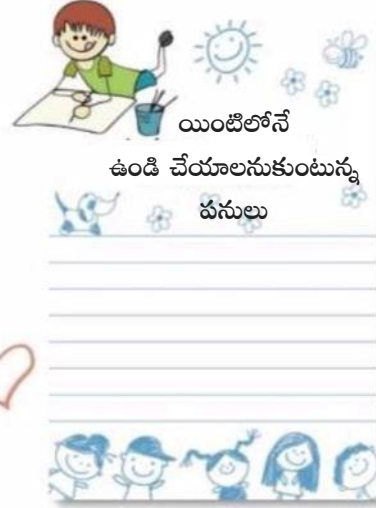 యింటిలోనే
ఉండి చేయాలనుకుంటున్న
పనులు